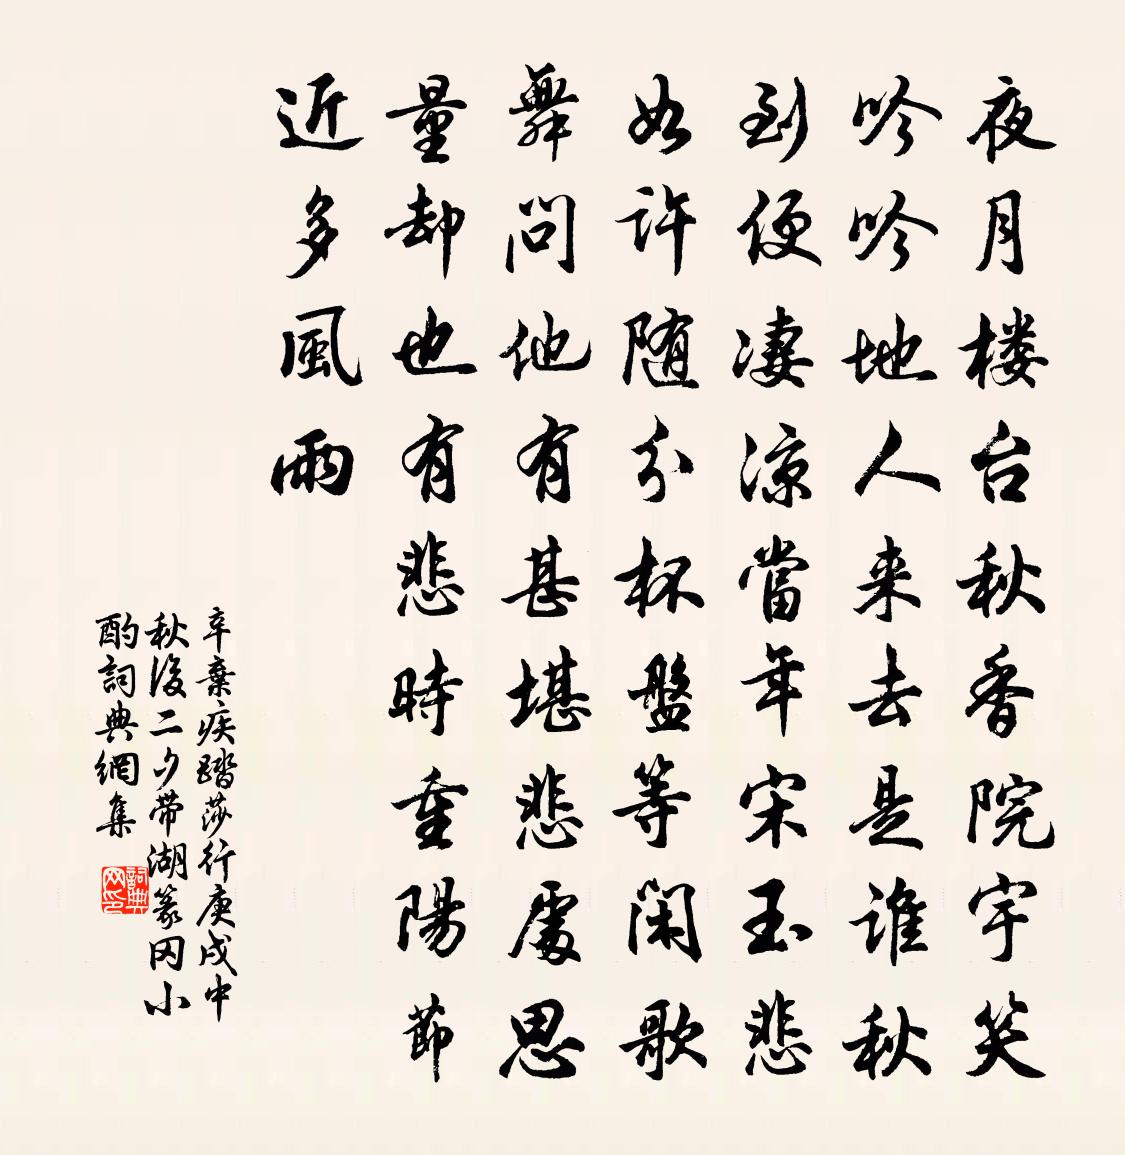 夜月楼台秋香院宇笑
吟吟地人来去是谁秋
到便凄凉當年宋玉悲
如許随分杯盤等闲歌
舞問他有甚堪悲處思
量却也有悲時重陽節
近多風雨
辛棄疾踏莎行庚戌中
秋後二夕带湖篆冈小
酌詞典網集
詞典网印